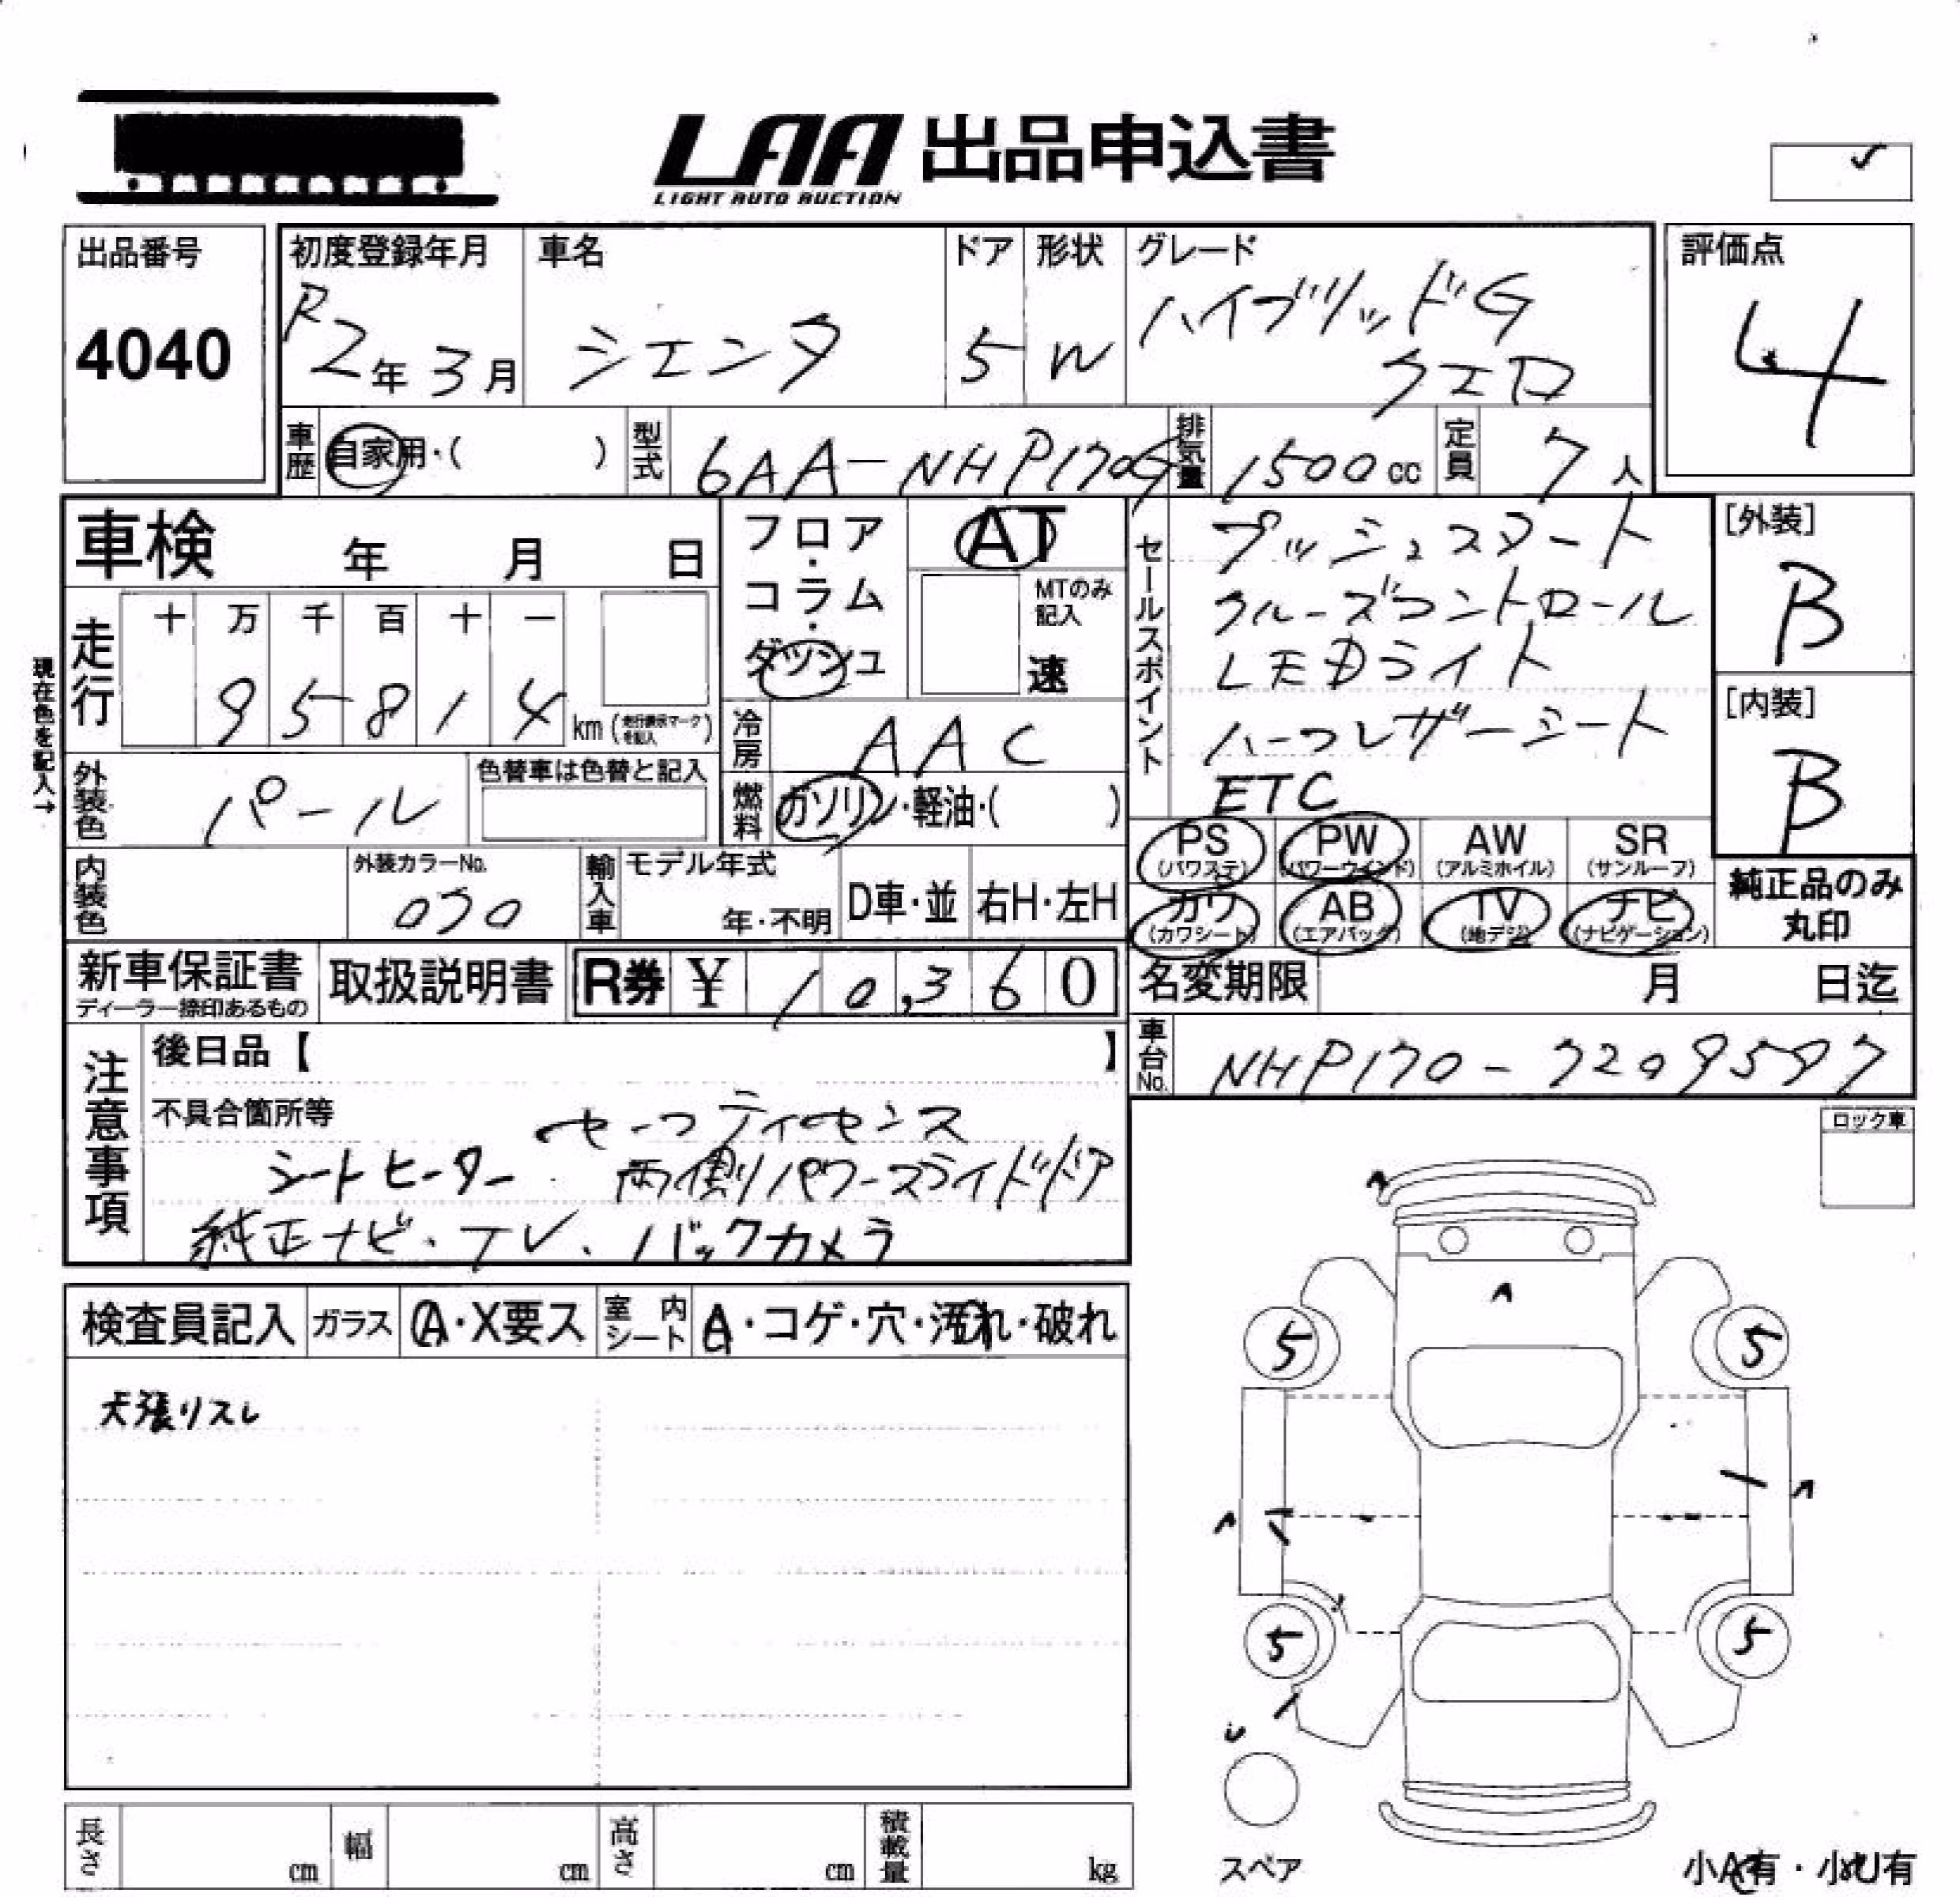 LAA 出品申込書
LIGHT AUTO AUCTION
出品番号
4040
初度登録年月
R2年3月
車名
シエンタ
ドア
5
形状
W
グレード
ハイブリッドG
クエロ
評価点
4
車歴
自家用・( )
型式
6AA-NHP170G
排気量
1500cc
定員
7人
車検 年 月 日
フロア・コラム・ダッシュ
AT
MTのみ記入
速
セールスポイント
プッシュスタート
クルーズコントロール
LEDライト
ハーフレザーシート
ETC
[外装]
B
[内装]
B
現在色を記入→
走行
十 万 千 百 十 一
9 5 8 1 4 km (走行表示マークを記入)
冷房
AAC
外装色
パール
色替車は色替と記入
燃料
ガソリン・軽油・( )
PS (パワステ)
PW (パワーウインド)
AW (アルミホイル)
SR (サンルーフ)
カワ (カワシート)
AB (エアバック)
TV (地デジ)
ナビ (ナビゲーション)
純正品のみ丸印
内装色
外装カラーNo.
070
輸入車
モデル年式
年・不明
D車・並
右H・左H
新車保証書
ディーラー捺印あるもの
取扱説明書
R券 ¥ 10,360
名変期限 月 日迄
車台No.
NHP170-7209597
注意事項
後日品【 】
不具合箇所等
セーフティセンス
シートヒーター 両側パワースライドドア
純正ナビ・TV・バックカメラ
ロック車
検査員記入
ガラス
A・X要ス
室内シート
A・コゲ・穴・汚れ・破れ
天張リスレ
5
5
5
5
スペア
長さ cm
幅 cm
高さ cm
積載量 kg
小A有・小U有